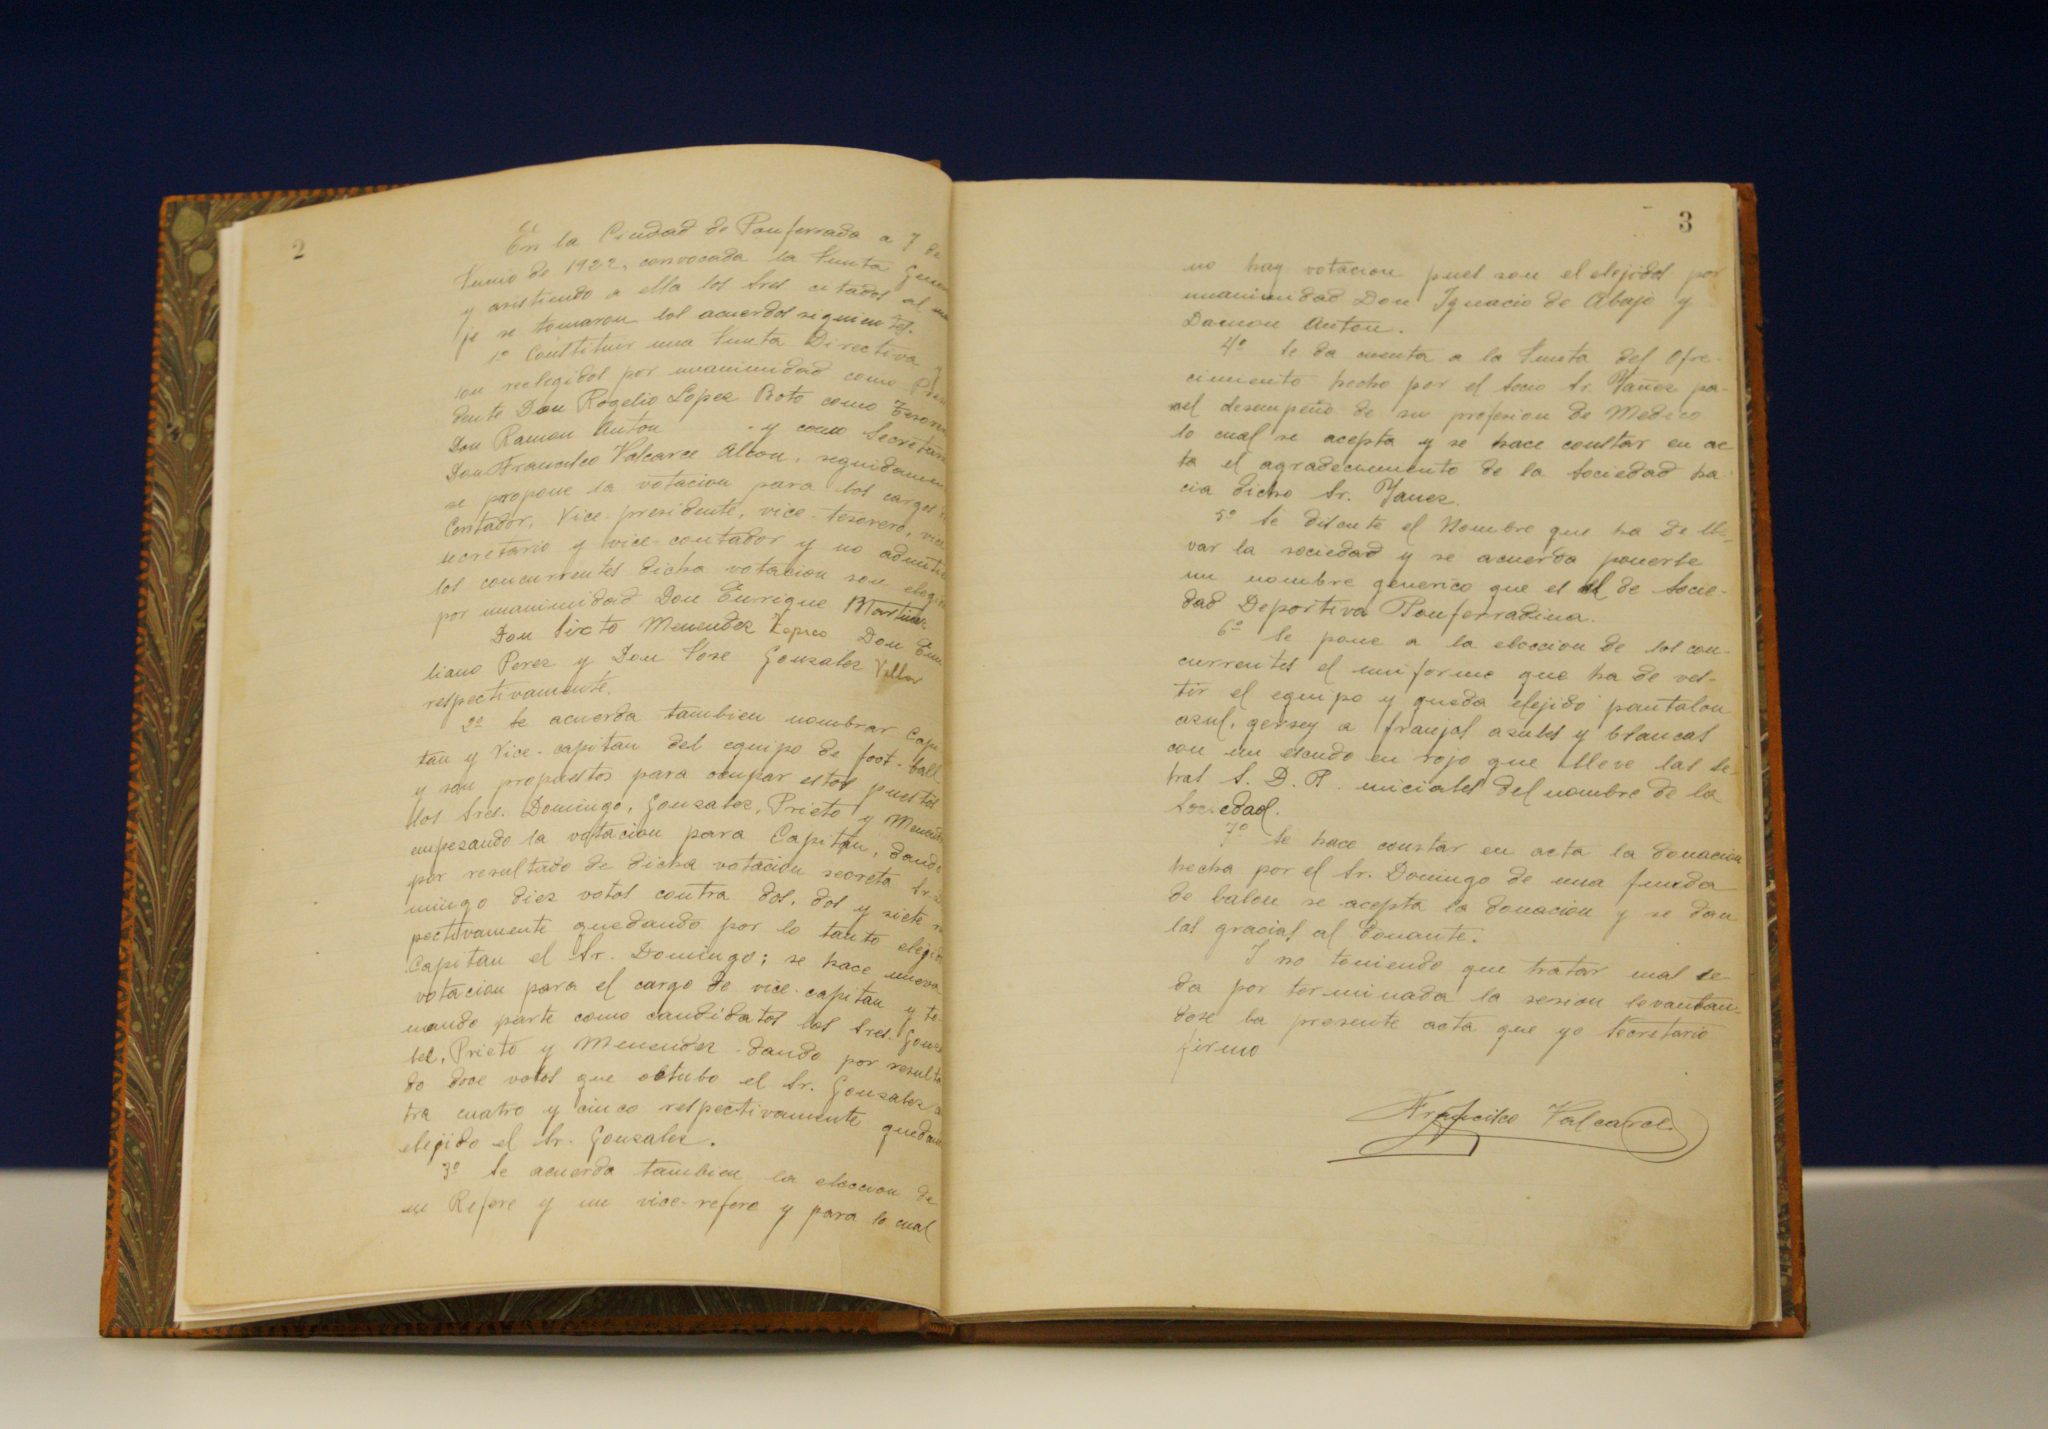 2
En la Ciudad de Ponferrada a 7 de
Junio de 1922, convocada la Junta Gene
y asistiendo a ella los Sres. citados al
je se tomaron los acuerdos siguientes.
1º Constituir una Junta Directiva y
son reelegidos por unanimidad como Presi
dente Don Rogelio López Boto como Tesorero
Don Ramon Anton - y como Secretario
Don Francisco Valcarce Alfon, seguidamen
se propone la votacion para los cargos
Contador, Vice-presidente, vice-tesorero, vice
secretario y vice-contador y no admitien
los concurrentes dicha votacion son elegi
por unanimidad Don Enrique Martinez
Don Sixto Menendez Don Emi
liano Perez y Don Jose Gonzalez Villar
respectivamente.
2º Se acuerda tambien nombrar Capi
tan y Vice-capitan del equipo de foot-ball
y son propuestos para ocupar estos puestos
los Sres. Domingo, Gonzalez, Prieto y Menendez
empezando la votacion para Capitan, dando
por resultado de dicha votacion secreta Sr. Do
mingo diez votos contra dos, dos y siete res
pectivamente quedando por lo tanto elegido
Capitan el Sr. Domingo; se hace nueva
votacion para el cargo de vice-capitan y to-
mando parte como candidatos los Sres. Gonza
lez, Prieto y Menendez dando por resulta
do doce votos que obtubo el Sr. Gonzalez
tra cuatro y cinco respectivamente quedan
elejido el Sr. Gonzalez.
3º Se acuerda tambien la eleccion de
un Refere y un vice-refere y para lo cual
3
no hay votacion pues son elejidos por
unanimidad Don Ignacio de Abajo y
Damon Anton.
4º Se da cuenta a la Junta del ofre-
cimiento hecho por el socio Sr. Yañez pa-
ael desempeño de su profesion de Medico
lo cual se acepta y se hace constar en ac
ta el agradecimiento de la Sociedad ha-
cia dicho Sr. Yanez.
5º Se discute el Nombre que ha de lle-
var la sociedad y se acuerda ponerle
un nombre generico que es el de Socie-
dad Deportiva Ponferradina.
6º Se pone a la eleccion de los con-
currentes el uniforme que ha de ves-
tir el equipo y queda elejido pantalon
azul, gersey a franjas azules y blancas
con un escudo en rojo que lleve las le-
tras S. D. P. iniciales del nombre de la
Sociedad.
7º Se hace constar en acta la donacion
hecha por el Sr. Domingo de una funda
de balon se acepta la donacion y se dan
las gracias al donante.
Y no teniendo que tratar mas se
da por terminada la sesion levantan-
dose la presente acta que yo Secretario
firmo
Francisco Valcarce